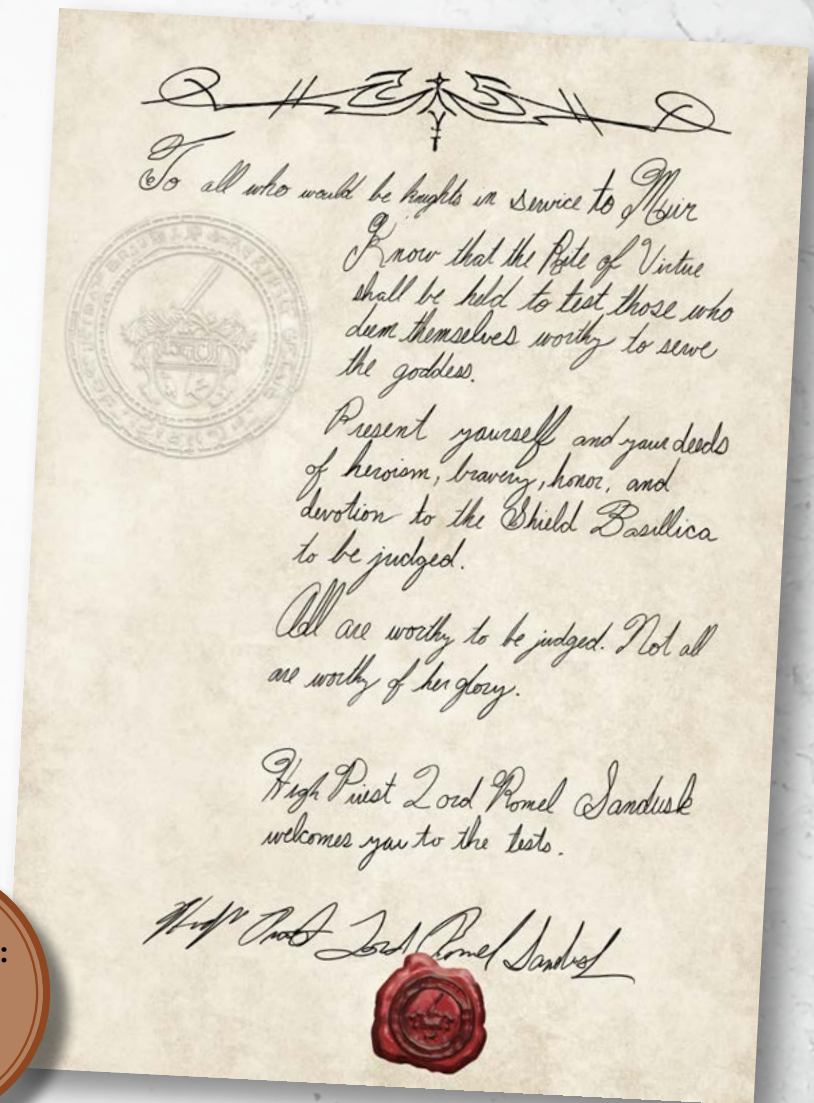 To all who would be knights in service to Muir
Know that the Rite of Virtue
shall be held to test those who
deem themselves worthy to serve
the goddess.
Present yourself and your deeds
of heroism, bravery, honor, and
devotion to the Shield Basillica
to be judged.
All are worthy to be judged. Not all
are worthy of her glory.
High Priest Lord Romel Sandusk
welcomes you to the tests.
High Priest Lord Romel Sandusk
: